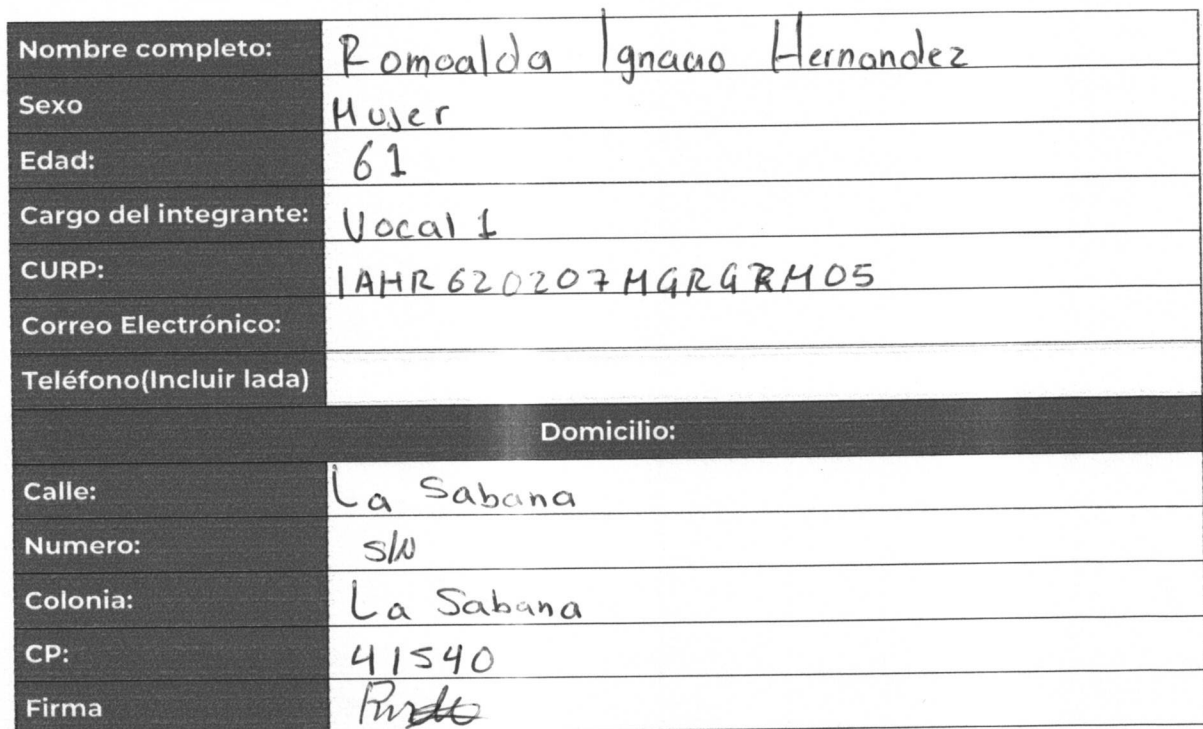 Nombre completo: Romoalda Ignacio Hernandez
Sexo Mujer
Edad: 61
Cargo del integrante: Vocal 1
CURP: IAHR620207MGRGRM05
Correo Electrónico:
Teléfono(Incluir lada)
Domicilio:
Calle: La Sabana
Numero: S/N
Colonia: La Sabana
CP: 41540
Firma